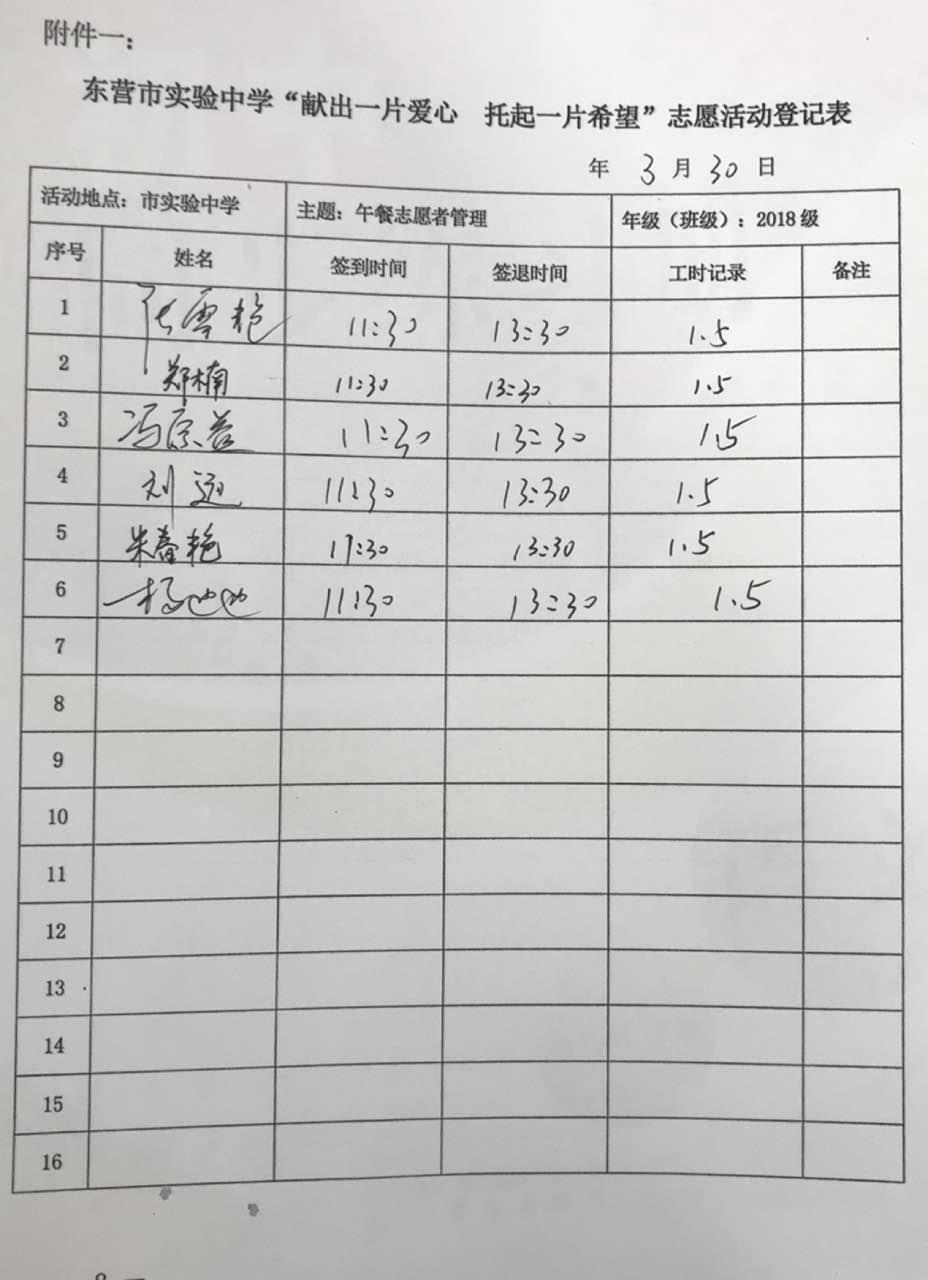 附件一：
东营市实验中学“献出一片爱心 托起一片希望”志愿活动登记表
年 3 月 30 日
活动地点：市实验中学 主题：午餐志愿者管理 年级（班级）：2018 级
序号 姓名 签到时间 签退时间 工时记录 备注
1 张雪艳 11:30 13:30 1.5
2 郑楠 11:30 13:30 1.5
3 冯 11:30 13:30 1.5
4 刘 11:30 13:30 1.5
5 朱春艳 11:30 13:30 1.5
6 杨 11:30 13:30 1.5
7
8
9
10
11
12
13
14
15
16